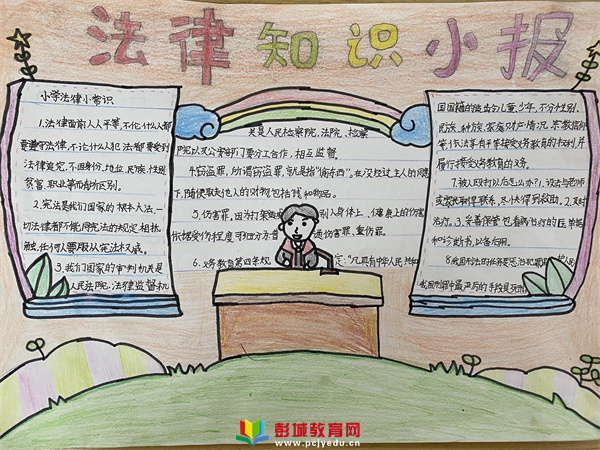 法律知识小报
小学法律小常识
1.法律面前人人平等,不论什么人都
要遵守法律,不论什么人犯法都要受到
法律追究,不因身份、地位、民族、性别、
贫富、职业等而有所区别。
2.宪法是我们国家的根本大法,一
切法律都不能同宪法的规定相抵
触,任何人要服从宪法权威。
3.我们国家的审判机关是
人民法院,法律监督机
关是人民检察院,法院、检察
院以及公安部门要分工合作,相互监督。
4.窃盗罪,所谓窃盗罪,就是指"偷东西"。在没经过主人的同意
下,随便取走他人的财物包括钱和物品。
5.伤害罪。因为打架 别人身上、健康上的伤害
依据受伤程度可细分为普通伤害罪、重伤罪。
6.义务教育第四条规定:"凡具有中华人民共和
国国籍的适齡儿童、少年,不分性别、
民族、种族、家庭财产情况、宗教信仰
等,依法享有平等接受义务教育的权利,并
履行接受义务教育的义务。
7.被人殴打以后怎么办?1.设法与老师
或家长取得联系,尽快得到救助。2.及时
治疗。3.妥善保管包有病治疗的医单据
和诊断书,以备用。
8.我国刑法的任务是惩治犯罪
我国刑罚中最严厉的手段是死刑
彭城教育网
www.pcjyedu.cn